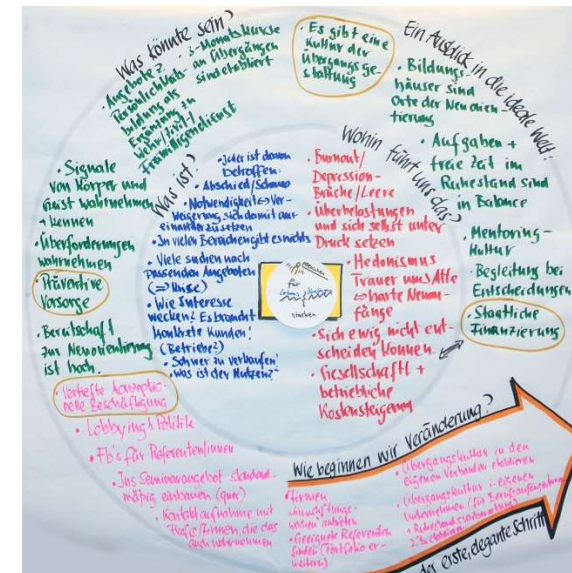 Was könnte sein?
Angebote?
Persönlichkeits-
bildung als
Ergänzung zu
Wehr-/Zivil-/
Freiwilligendienst
• 3-Monatskurse
an Übergängen
sind etabliert
• Es gibt eine
Kultur der
Übergangsge-
staltung
Ein Ausblick in die ideale Welt:
• Bildungs-
häuser sind
Orte der Neuorien-
tierung
• Aufgaben +
freie Zeit im
Ruhestand sind
in Balance
• Mentoring-
Kultur
• Begleitung bei
Entscheidungen
• Staatliche
Finanzierung
• Signale
von Körper und
Geist wahrnehmen
+ kennen
• Überforderungen
wahrnehmen
• Präventive
Vorsorge
• Bereitschaft
zur Neuorientierung
ist hoch
Was ist?
• Jeder ist davon
betroffen:
• Abschied/Schmerz
• Notwendigkeit ↔ Ver-
weigerung sich damit aus-
einander zu setzen
• In vielen Bereichen gibt es nichts
• Viele suchen nach
passenden Angeboten
• Wie Interesse
wecken? Es braucht
konkrete Kunden!
(Betriebe?)
• Schwer zu verkaufen!
• Was ist der Nutzen?
für
stärken
Wohin führt uns das?
• Burnout/
Depression-
Brüche/Leere
• Überbelastungen
und sich selbst unter
Druck setzen
• Hedonismus
Trauer ums Alte
↔ harte Neuan-
fänge
• Sich ewig nicht ent-
scheiden können.
• Gesellschaftl +
betriebliche
Kostensteigerung
• Vertiefte konzeptio-
nelle Beschäftigung
• Lobbying + Politik
• Fb's für Referenten/innen
• Ins Seminarangebot standard-
mäßig einbauen (quer)
• Kontaktaufnahme mit
Profis/Firmen, die das
auch wahrnehmen
Wie beginnen wir Veränderung?
• Firmen
anbieten
• Geeignete Referenten
finden (Portfolio er-
weitern)
• Übergangskultur in den
eigenen Verbänden etablieren
• Übergangskultur i. eigenen
Unternehmen (für Berufsanfänger
der erste, elegante Schritt